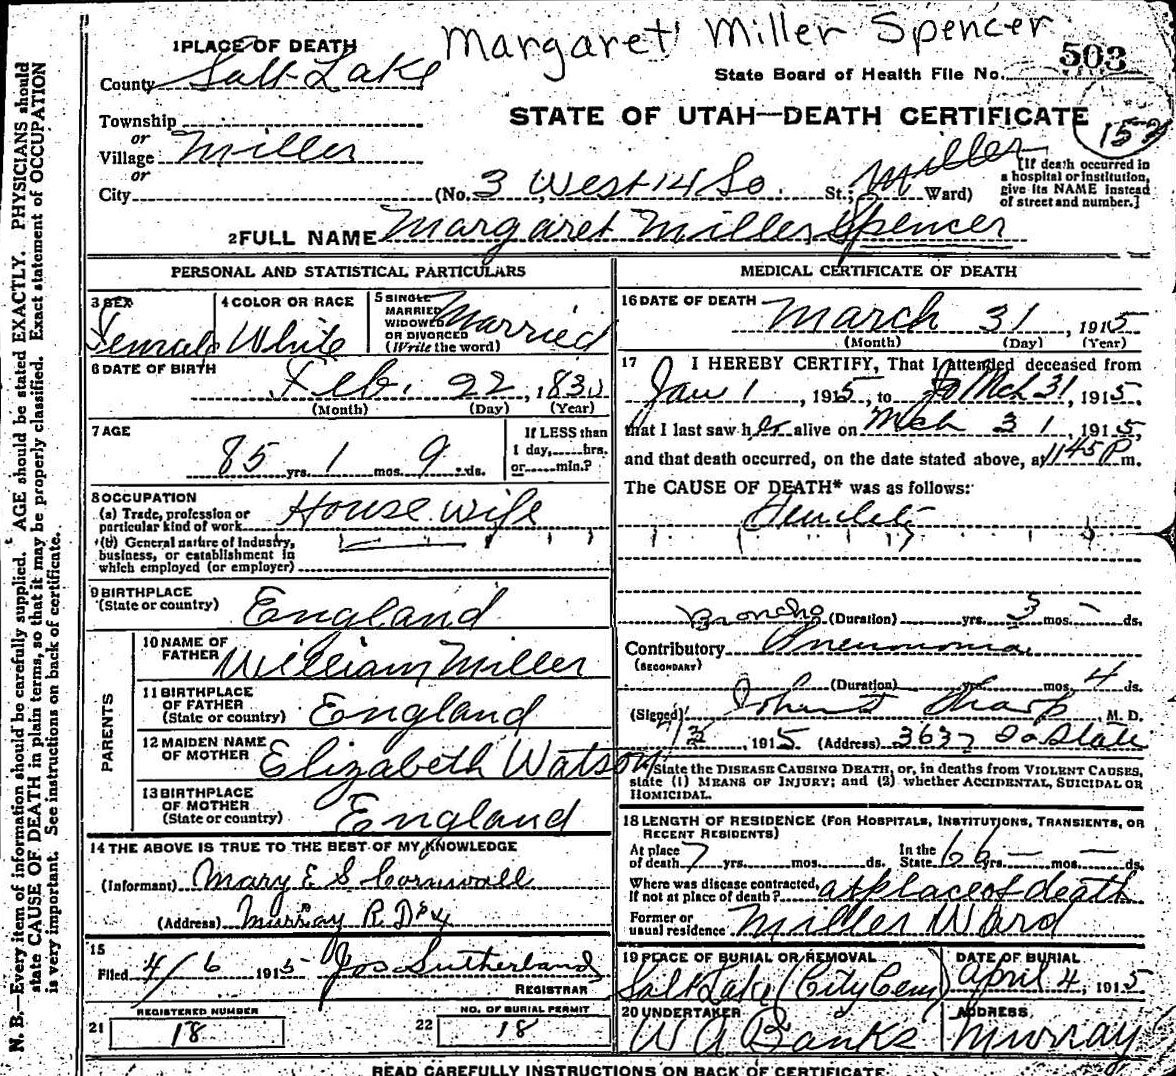 Margaret Miller Spencer
503
State Board of Health File No.
STATE OF UTAH—DEATH CERTIFICATE
152
1 PLACE OF DEATH
County Salt Lake
Township
or
Village Miller
or
City (No. 3 West 14 So. St; Miller Ward)
[If death occurred in
a hospital or institution,
give its NAME instead
of street and number.]
2 FULL NAME Margaret Miller Spencer
PERSONAL AND STATISTICAL PARTICULARS
3 SEX
Female
4 COLOR OR RACE
White
5 SINGLE
MARRIED
WIDOWED
OR DIVORCED
(Write the word)
Married
6 DATE OF BIRTH
Feb. 22, 183
(Month) (Day) (Year)
7 AGE
85 yrs. 1 mos. 9 ds.
If LESS than
1 day, hrs.
or min.?
8 OCCUPATION
(a) Trade, profession or
particular kind of work House wife
(b) General nature of Industry,
business, or establishment in
which employed (or employer)
9 BIRTHPLACE
(State or country) England
PARENTS
10 NAME OF
FATHER William Miller
11 BIRTHPLACE
OF FATHER
(State or country) England
12 MAIDEN NAME
OF MOTHER Elizabeth Watson
13 BIRTHPLACE
OF MOTHER
(State or country) England
14 THE ABOVE IS TRUE TO THE BEST OF MY KNOWLEDGE
(Informant) Mary E S Cornwall
(Address) Murray R.D #4
15
Filed 4/6 1915 Jos Sutherland
REGISTRAR
REGISTERED NUMBER
21 18
NO. OF BURIAL PERMIT
22 18
MEDICAL CERTIFICATE OF DEATH
16 DATE OF DEATH
March 31, 1915
(Month) (Day) (Year)
17 I HEREBY CERTIFY, That I attended deceased from
Jan 1, 1915, to Mch 31, 1915.
that I last saw her alive on Mch 31, 1915,
and that death occurred, on the date stated above, at 1145 P m.
The CAUSE OF DEATH* was as follows:
Senility
(Duration) yrs. 3 mos. - ds.
Contributory Broncho Pneumonia
(SECONDARY)
(Duration) yrs. mos. 4 ds.
(Signed) Sharp, M. D.
1915 (Address) 3637 So State
*State the DISEASE CAUSING DEATH, or, in deaths from VIOLENT CAUSES,
state (1) MEANS OF INJURY; and (2) whether ACCIDENTAL, SUICIDAL OR
HOMICIDAL.
18 LENGTH OF RESIDENCE (FOR HOSPITALS, INSTITUTIONS, TRANSIENTS, OR
RECENT RESIDENTS)
At place
of death 7 yrs. mos. ds.
In the
State 66 yrs. — mos. — ds.
Where was disease contracted,
If not at place of death? at place of death
Former or
usual residence Miller Ward
19 PLACE OF BURIAL OR REMOVAL
Salt Lake (City Cem)
DATE OF BURIAL
April 4, 1915
20 UNDERTAKER
W A Banks
ADDRESS
Murray
READ CAREFULLY INSTRUCTIONS ON BACK OF CERTIFICATE.
N. B.—Every item of information should be carefully supplied. AGE should be stated EXACTLY. PHYSICIANS should
state CAUSE OF DEATH in plain terms, so that it may be properly classified. Exact statement of OCCUPATION
is very important. See instructions on back of certificate.